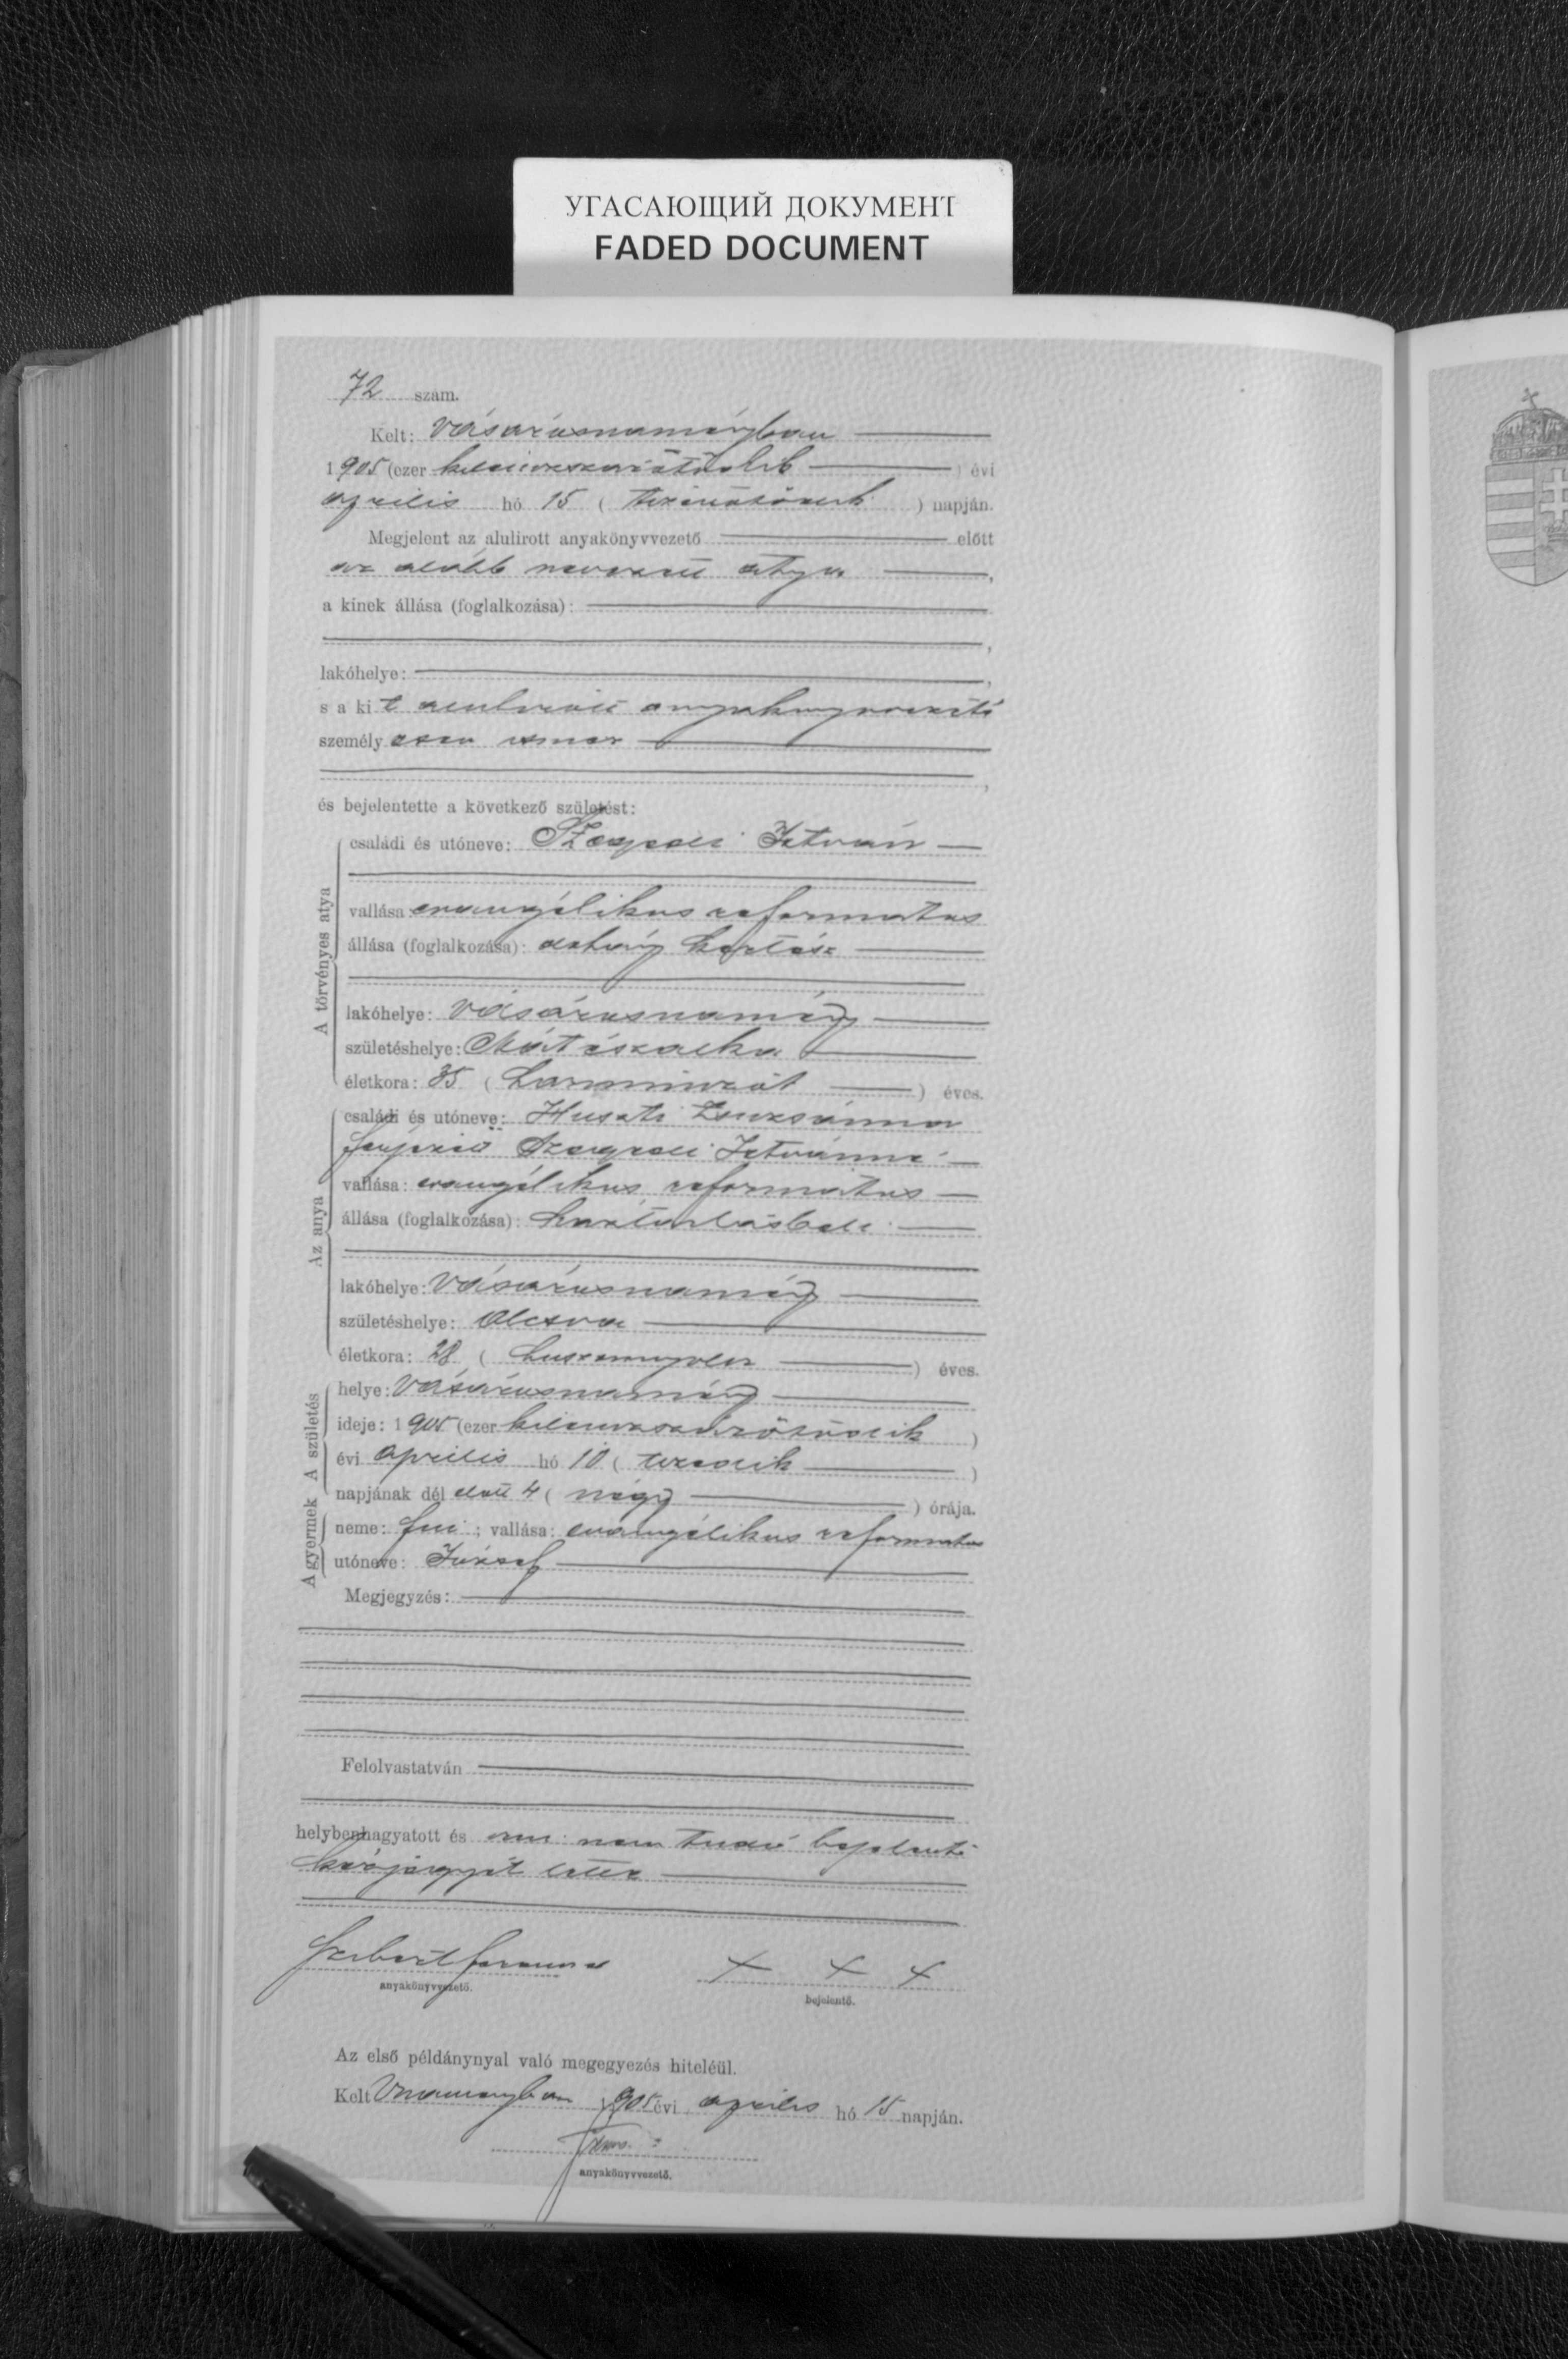 УГАСАЮЩИЙ ДОКУМЕНТ
FADED DOCUMENT
72 szám.
Kelt: Vásárosnaményban
1905 (ezer kilenczszázötödik) évi
április hó 15 (tizenötödik) napján.
Megjelent az alulirott anyakönyvvezető előtt
az alább nevezett atya,
a kinek állása (foglalkozása):
lakóhelye:
s a kit alulirott anyakönyvvezető
személyesen ismer
és bejelentette a következő születést:
A törvényes atya
családi és utóneve: István
vallása: evangélikus reformatus
állása (foglalkozása): kertész
lakóhelye: Vásárosnamény
születéshelye: Mátészalka
életkora: 35 (harminczöt) éves.
Az anya
családi és utóneve: Huszti Zsuzsánna
férjezett Istvánné
vallása: evangélikus református
állása (foglalkozása): háztartásbeli
lakóhelye: Vásárosnamény
születéshelye: Olcsva
életkora: 28 (huszonnyolcz) éves.
A születés
helye: Vásárosnamény
ideje: 1905 (ezer kilenczszázötödik)
évi április hó 10 (tizedik)
napjának dél előtt 4 (négy) órája.
A gyermek
neme: fiú; vallása: evangélikus reformatus
utóneve: József
Megjegyzés:
Felolvastatván
helybenhagyatott és irni nem tudó bejelentő
kézjegyét
Ferencz
anyakönyvvezető.
+ + +
bejelentő.
Az első példánynyal való megegyezés hiteléül.
Kelt Vnaményban 1905 évi április hó 15 napján.
anyakönyvvezető.